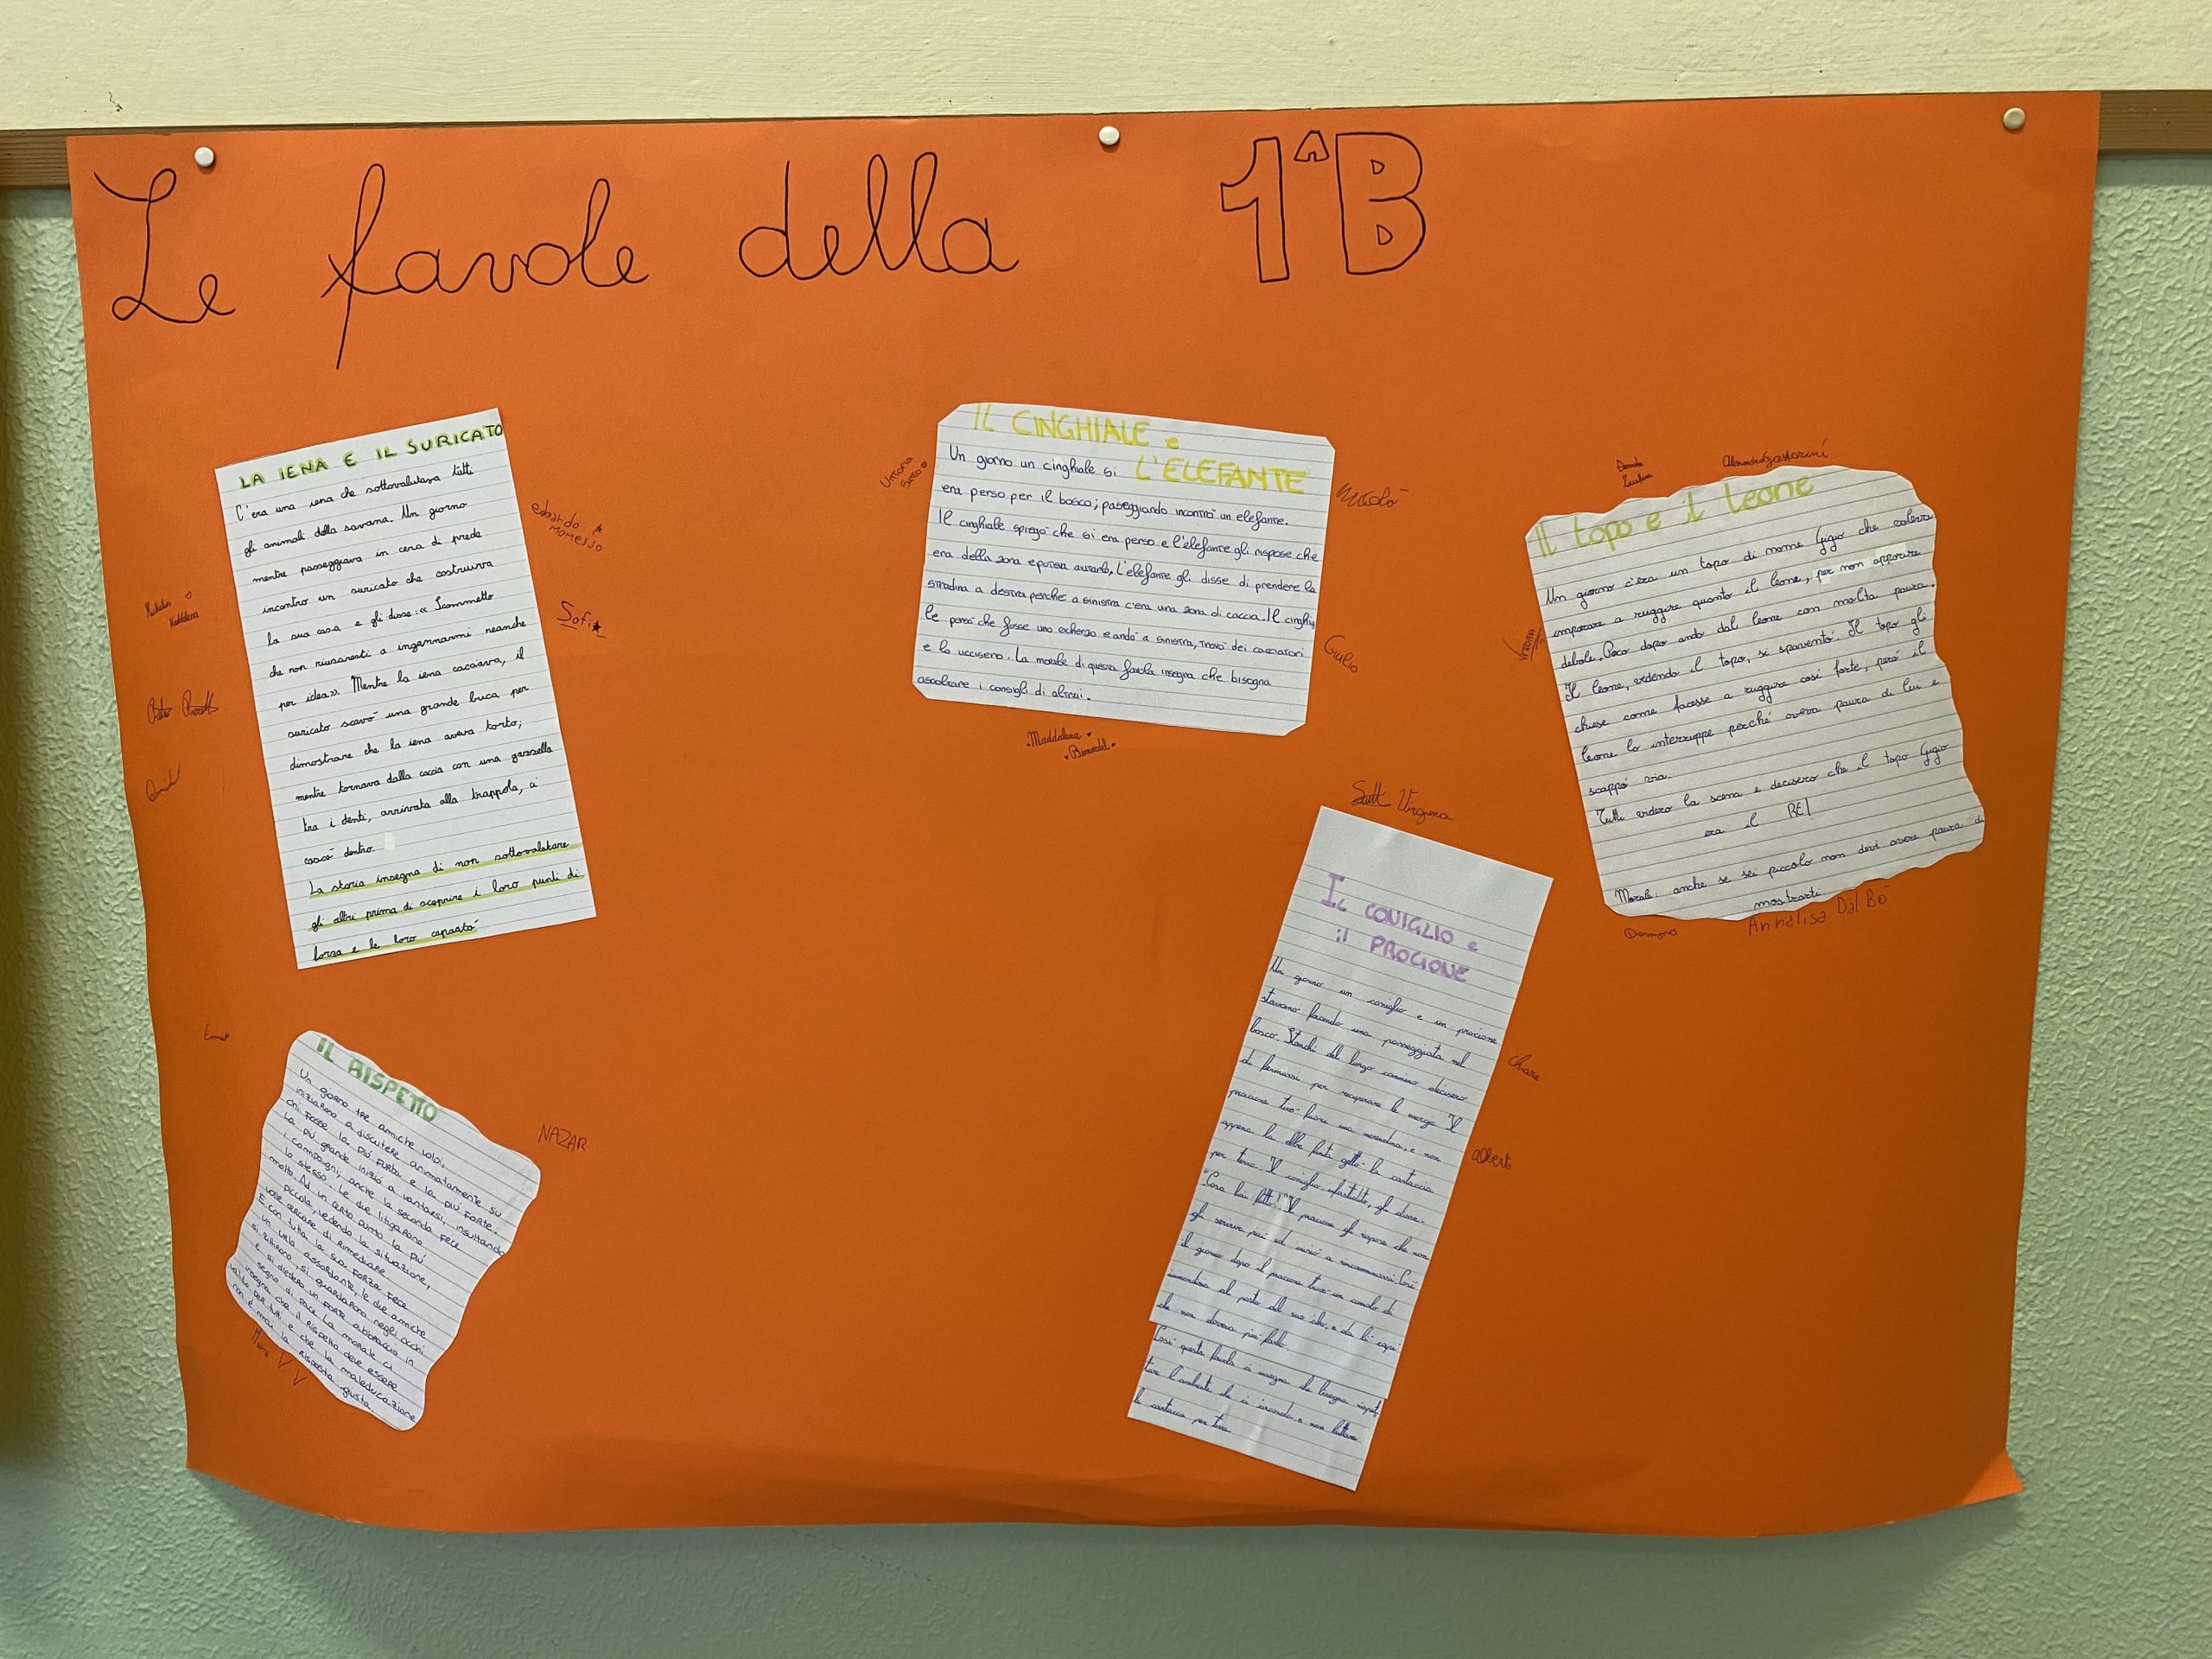 Le favole della 1^B
LA IENA E IL SURICATO
C'era una iena che sottovalutava tutti
gli animali della savana. Un giorno
mentre passeggiava in cera di prede
incontro un suricato che costruiva
la sua casa e gli disse: « Scommetto
che non riusciresti a ingannarmi neanche
per idea». Mentre la iena cacciava, il
suricato scavò una grande buca per
dimostrare che la iena aveva torto;
mentre tornava dalla caccia con una gazzella
tra i denti, arrivata alla trappola, ci
cascò dentro.
La storia insegna di non sottovalutare
gli altri prima di scoprire i loro punti di
forza e le loro capacità
edoardo
Momesso
Sofia
Maddalena
Pietro
IL CINGHIALE e
L'ELEFANTE
Un giorno un cinghiale si
era perso per il bosco; passeggiando incontrò un elefante.
Il cinghiale spiegò che si era perso e l'elefante gli rispose che
era della zona e poteva aiutarlo. L'elefante gli disse di prendere la
stradina a destra perchè a sinistra c'era una zona di caccia. Il cinghia
le pensò che fosse uno scherzo e andò a sinistra, trovò dei cacciatori
e lo uccisero. La morale di questa favola insegna che bisogna
ascoltare i consigli di altrui.
Nicolò
Giulio
Maddalena
Il topo e il leone
Un giorno c'era un topo di nome Gigio che voleva
imparare a ruggire quanto il leone, per non apparire
debole. Poco dopo andò dal leone con molta paura.
Il leone, vedendo il topo, si spaventò. Il topo gli
chiese come facesse a ruggire così forte, però il
leone lo interruppe perché aveva paura di lui e
scappò via.
Tutti videro la scena e decisero che il topo Gigio
era il RE!
Morale: anche se sei piccolo non devi avere paura di
mostrarti.
Annalisa Dal Bò
IL RISPETTO
Un giorno tre amiche volpi,
iniziarono a discutere animatamente su
chi fosse la più furba e la più forte.
La più grande iniziò a vantarsi, insultando
i compagni; anche la seconda fece
lo stesso. Le due litigarono
molto. Ad un certo punto la più
piccola, vedendo la situazione,
volle cercare di rimediare.
E con tutta la sua forza fece
un urlo assordante, le due amiche
si zittirono, si guardarono negli occhi
e si diedero un forte abbraccio in
segno di pace. La morale ci
insegna che il rispetto deve essere
valido per tutti e che la maleducazione
non è mai la risposta giusta.
NAZAR
Virginia
IL CONIGLIO e
il PROCIONE
Un giorno un coniglio e un procione
stavano facendo una passeggiata nel
bosco. Stanchi del lungo cammino decisero
di fermarsi per recuperare le energie. Il
procione tirò fuori una merendina, e non
appena la ebbe finita gettò la cartaccia
per terra. Il coniglio infastidito, gli disse:
"Cosa hai fatto!" Il procione gli rispose che non
gli serviva più ed iniziò a rincamminarsi. Così
il giorno dopo il procione trovò un cumulo di
immondizia al posto del suo cibo, e da lì capì
che non doveva più farlo.
Così questa favola ci insegna che bisogna rispet-
tare l'ambiente che ci circonda, e non buttare
le cartacce per terra
Chiara
Alberto